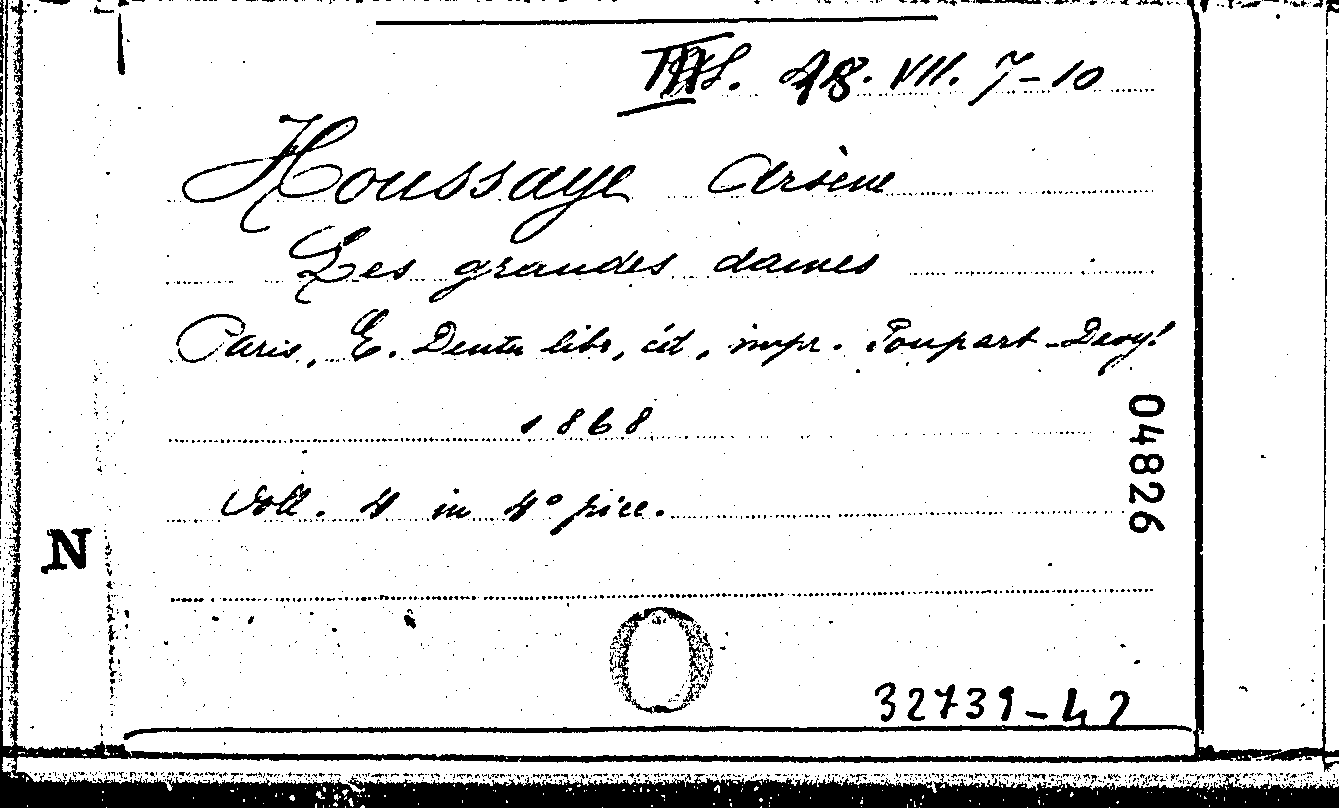 48. VII. 7-10
Houssaye Arsène
Les grandes dames
Paris, E. Dentu libr, éd, impr. Poupart-Davyl
1868
04826
Voll. 4 in 4° picc.
N
32739-42